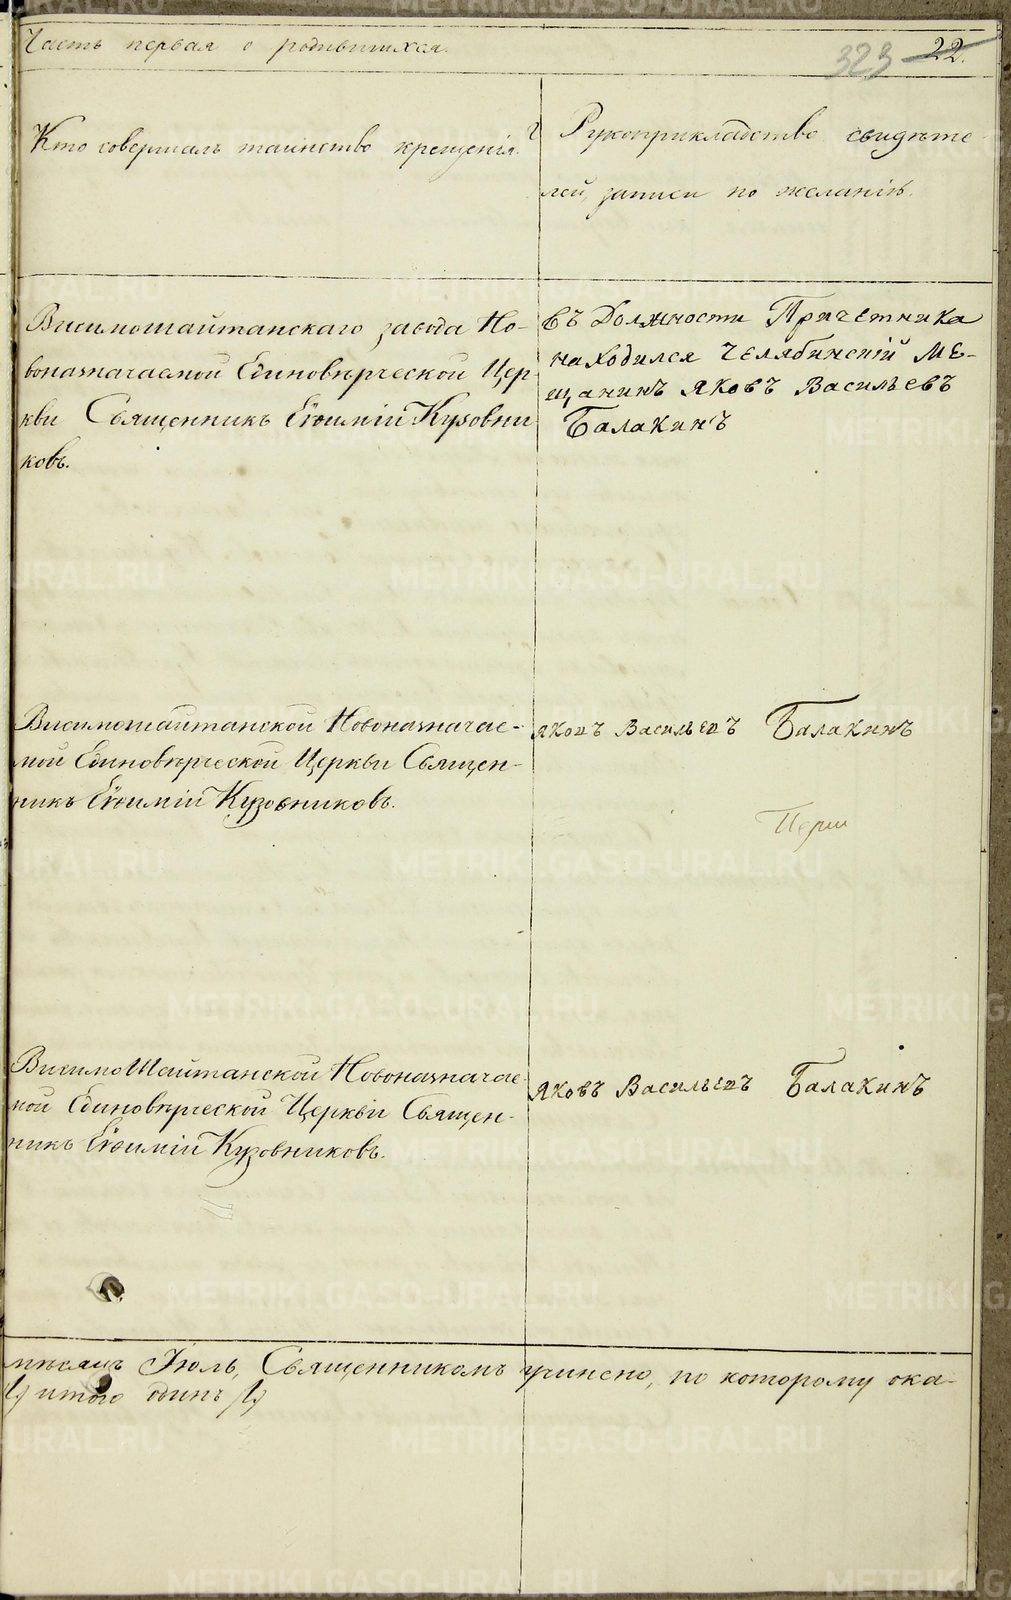 Часть первая о родившихся.
323 22.
Кто совершалъ таинство крещенія.
Рукоприкладство свидѣте
лей, записи по желанію.
Висимошайтанскаго завода Но-
воназначаемой Единовѣрческой Цер
кви Священникъ Евѳимій Кузовни
ковъ.
въ Должности Причетника
находился Челябинскій Ме-
щанинъ Яковъ Васильевъ
Балакинъ
Висимошайтанской Новоназначае-
мой Единовѣрческой Церкви Священ-
никъ Евѳимій Кузовниковъ.
Яковъ Васильевъ Балакинъ
Висимо Шайтанской Новоназначае
мой Единовѣрческой Церкви Священ-
никъ Евѳимій Кузовниковъ.
Яковъ Васильевъ Балакинъ
мѣсяцъ Іюль, Священникомъ учинено, по которому ока-
итого одинъ
METRIKI.GASO-URAL.RU